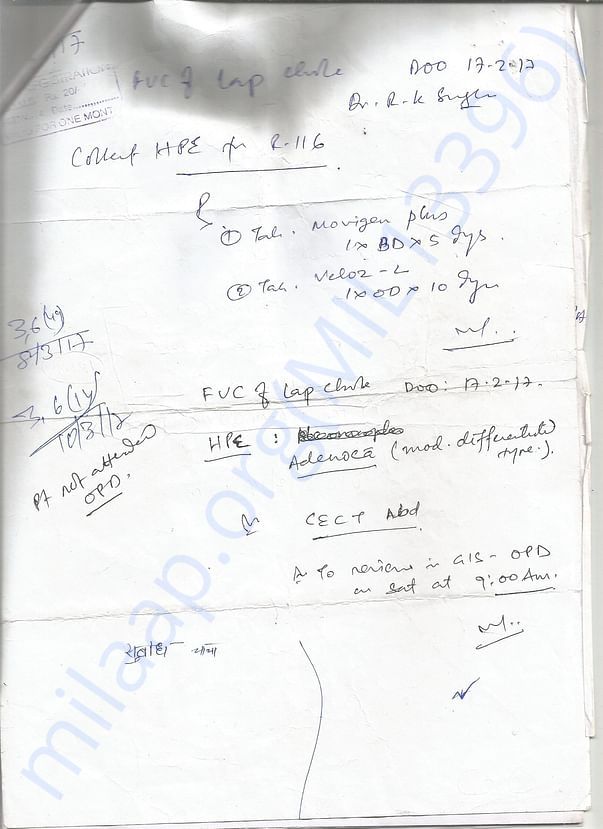 FUC of Lap chole DOO 17-2-17
Dr. R.K Singh
Collect HPE fr R-116
① Tab. Movigen plus
1x BD x 5 dys.
② Tab. Veloz-L
1x OD x 10 dys
3,6 (19)
8/3/17
FUC of Lap Chole DOO: 17.2.17.
3,6 (14)
10/3/17
HPE :
Adenoca (mod. differentiated type.).
Pt not attended
OPD.
CECT Abd
To review in GIS-OPD
on sat at 9:00 Am.
milaap.org(MIL 113396)